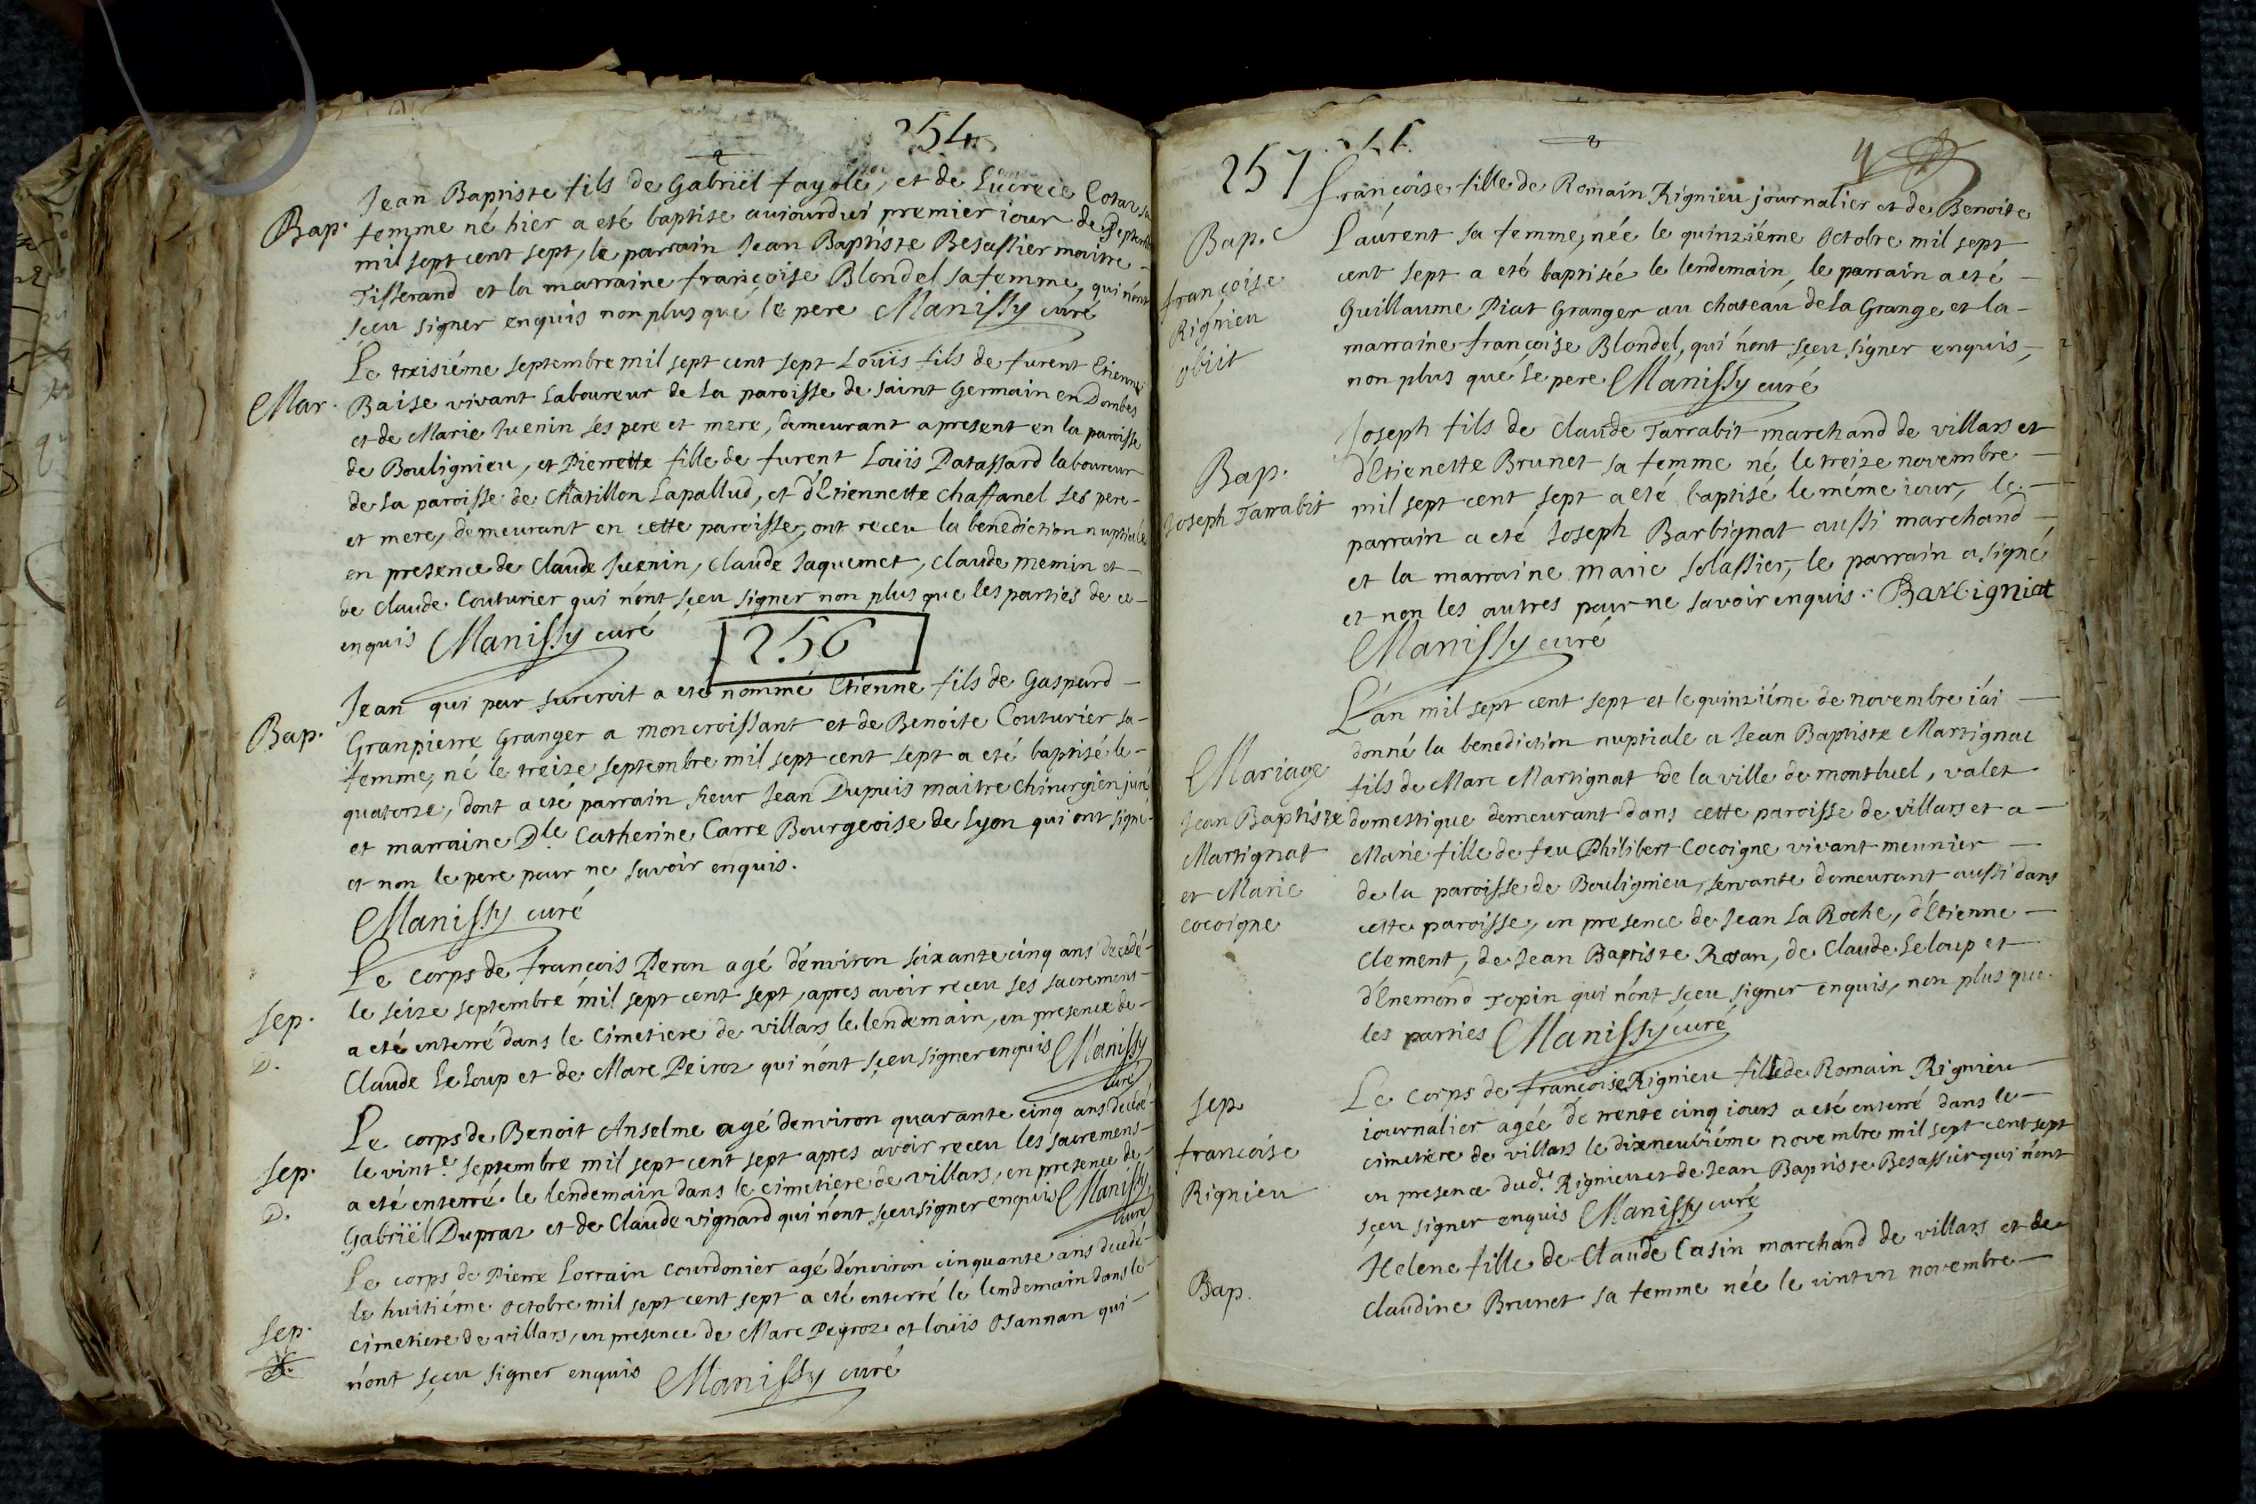 254
Bap.
Jean Baptiste fils de Gabriel fayole, et de Lucrece Cotar sa
femme né hier a eté baptise aujourdui premier jour de Septembre
mil sept cent sept, le parrain Jean Baptiste Besassier maitre
Tisserand et la marraine françoise Blondel sa femme, qui n'ont
sçeu signer enquis non plus que le pere Manissy curé
Mar.
Le troisiéme septembre mil sept cent sept Loüis fils de furent Etienne
Baise vivant Laboureur de la paroisse de saint Germain en Dombes
et de Marie Juenin ses pere et mere, demeurant a present en la paroisse
de Boulignieu, et Pierrette fille de furent Loüis Patassard laboureur
de la paroisse de Chatillon Lapallud, et d'Etiennette Chassanel ses pere
et mere, demeurant en cette paroisse, ont receu la benediction nuptiale
en presence de Claude Juenin, Claude Jaquemet, Claude Memin et
de Claude Couturier qui n'ont sçeu signer non plus que les parties de ce
enquis Manissy curé
256
Bap.
Jean qui par surcroit a eté nommé Etienne fils de Gaspard
Granpierre Granger a moncroissant et de Benoite Couturier sa
femme, né le treize septembre mil sept cent sept a eté baptisé le
quatorze, dont a eté parrain sieur Jean Dupuis maitre chirurgien juré
et marraine Dle. Catherine Carre Bourgeoise de Lyon qui ont signé
et non le pere pour ne savoir enquis.
Manissy curé
Sep.
D.
Le corps de françois Peron agé d'environ soixante cinq ans decedé
le seize septembre mil sept cent sept, apres avoir receu ses sacremens
a eté enterré dans le Cimetiere de villars le lendemain, en presence de
Claude Leloup et de Marc Peiroz qui n'ont sçeu signer enquis Manissy
curé
Sep.
D.
Le corps de Benoit Anselme agé d'environ quarante cinq ans decedé
le vint.e septembre mil sept cent sept apres avoir receu les sacremens
a eté enterré le lendemain dans le cimetiere de villars, en presence de
Gabriël Dupraz et de Claude vignard qui n'ont sçeu signer enquis Manissy
curé
Sep.
D.
Le corps de Pierre Lorrain Courdonier agé d'environ cinquante ans decedé
le huitiéme octobre mil sept cent sept a eté enterré le lendemain dans le
cimetiere de villars, en presence de Marc Peyroz et loüis Osannan qui
n'ont sçeu signer enquis Manissy curé
257
Bap.
françoise
Rignieu
obiit
françoise fille de Romain Rignieu journalier et de Benoite
Laurent sa femme, née le quinziéme Octobre mil sept
cent sept a eté baptisée le lendemain, le parrain a eté
Guillaume Piat Granger au chateau de la Grange et la
marraine françoise Blondel, qui n'ont sçeu signer enquis,
non plus que le pere Manissy curé
Bap.
Joseph Tarrabit
Joseph fils de Claude Tarrabit marchand de villars et
d'Etienette Brunet sa femme né le treize novembre
mil sept cent sept a eté baptisé le méme jour, le
parrain a eté Joseph Barbignat aussi marchand
et la marraine Marie Selassier, le parrain a signé
et non les autres pour ne savoir enquis. Barbigniat
Manissy curé
Mariage
Jean Baptiste
Martignat
et Marie
Cocoigne
L'an mil sept cent sept et le quinziéme de novembre j'ai
donné la benediction nuptiale a Jean Baptiste Martignat
fils de Marc Martignat de la ville de montluel, valet
domestique demeurant dans cette paroisse de villars et a
Marie fille de feu Philibert Cocoigne vivant meunier
de la paroisse de Boulignieu, servante demeurant aussi dans
cette paroisse, en presence de Jean La Roche, d'Etienne
Clement, de Jean Baptiste Rosan, de Claude Leloup et
d'Enemond Topin qui n'ont sçeu signer enquis, non plus que
les parties Manissy curé
Sep.
françoise
Rignieu
Le corps de françoise Rignieu fille de Romain Rignieu
journalier agée de trente cinq jours a eté enterré dans le
cimetiere de villars le dixneuviéme novembre mil sept cent sept
en presence dud. Rignieu et de Jean Baptiste Besassier qui n'ont
sçeu signer enquis Manissy curé
Bap.
Helene fille de Claude Casin marchand de villars et de
Claudine Brunet sa femme née le vint un novembre